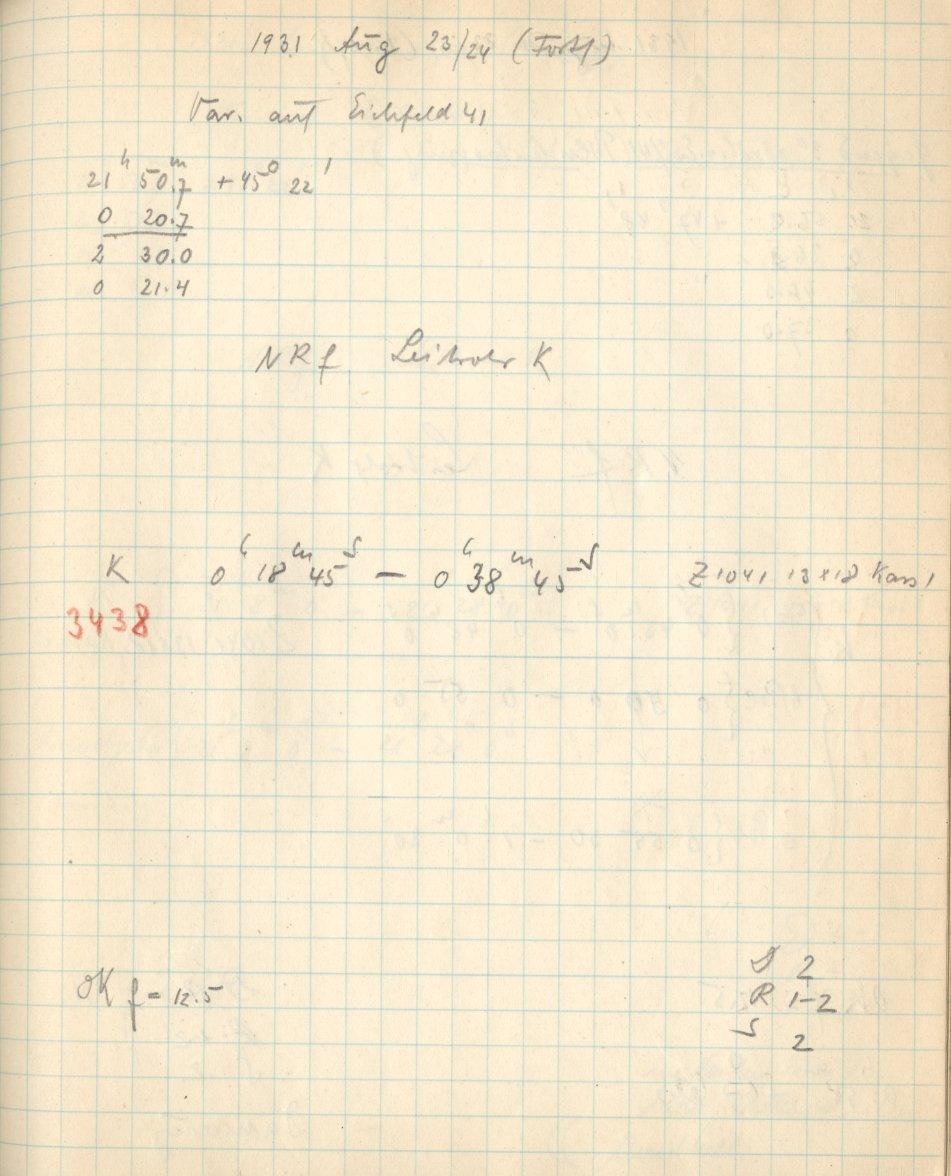 1931 Aug 23/24 (Forts)
Var. auf Eichfeld 41
21ʰ 50.7ᵐ +45° 22'
0 20.7
2 30.0
0 21.4
NRf Leitrohr K
K 0ʰ 18ᵐ 45ˢ — 0ʰ 38ᵐ 45ˢ Z1041 13x18 Kass 1
3438
OK f = 12.5
D 2
R 1-2
S 2